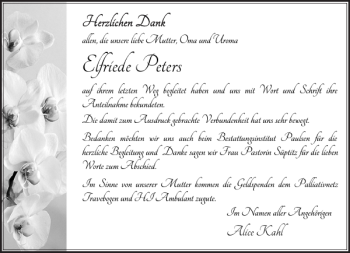 Herzlichen Dank
allen, die unsere liebe Mutter, Oma und Uroma
Elfriede Peters
auf ihrem letzten Weg begleitet haben und uns mit Wort und Schrift ihre
Anteilnahme bekundeten.
Die damit zum Ausdruck gebrachte Verbundenheit hat uns sehr bewegt.
Bedanken möchten wir uns auch beim Bestattungsinstitut Paulsen für die
herzliche Begleitung und Danke sagen wir Frau Pastorin Süptitz für die lieben
Worte zum Abschied.
Im Sinne von unserer Mutter kommen die Geldspenden dem Palliativnetz
Travebogen und HI Ambulant zugute.
Im Namen aller Angehörigen
Alice Kahl